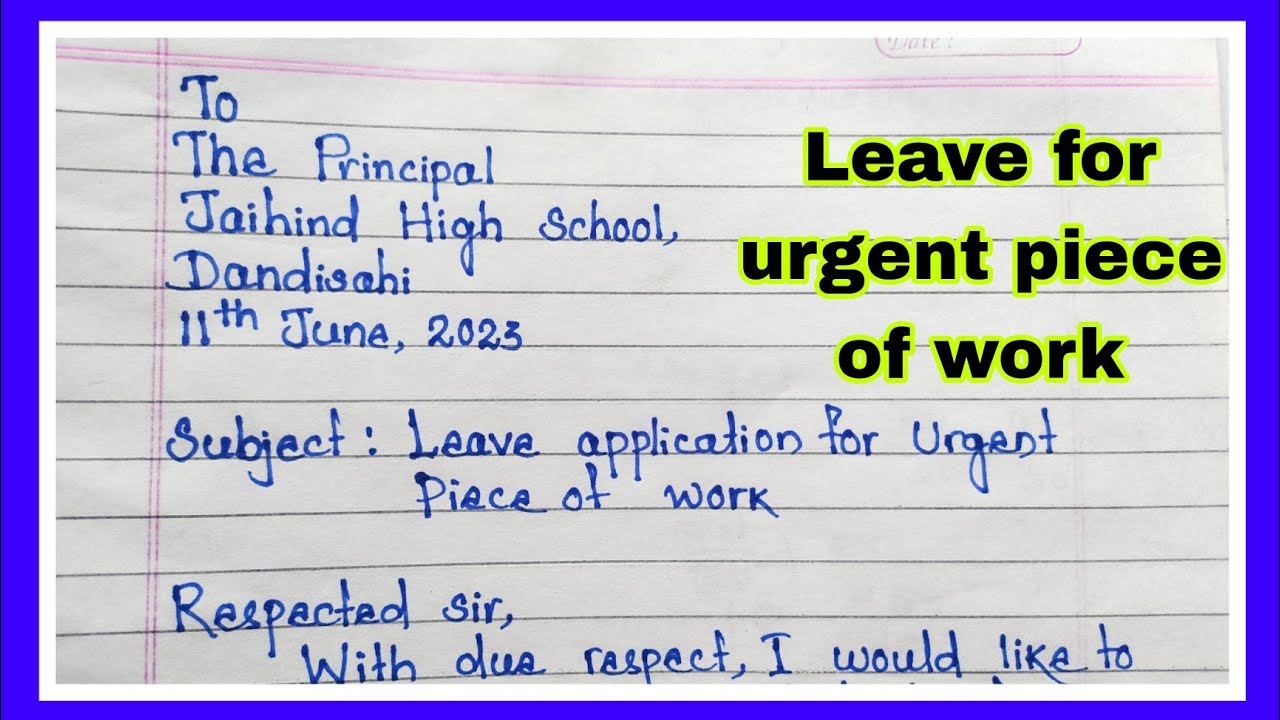 Date :
To
The Principal
Jaihind High School,
Dandisahi
11th June, 2023
Subject : Leave application for Urgent
Piece of work
Respected sir,
With due respect, I would like to
Leave for
urgent piece
of work